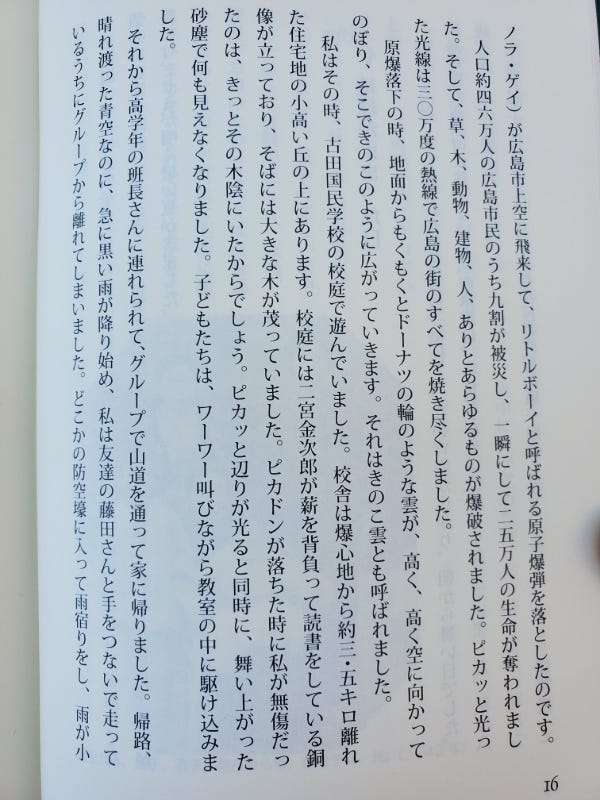 ノラ・ゲイ）が広島市上空に飛来して、リトルボーイと呼ばれる原子爆弾を落としたのです。
人口約四六万人の広島市民のうち九割が被災し、一瞬にして二五万人の生命が奪われまし
た。そして、草、木、動物、建物、人、ありとあらゆるものが爆破されました。ピカッと光っ
た光線は三〇万度の熱線で広島の街のすべてを焼き尽くしました。
原爆落下の時、地面からもくもくとドーナツの輪のような雲が、高く、高く空に向かって
のぼり、そこできのこのように広がっていきます。それはきのこ雲とも呼ばれました。
私はその時、古田国民学校の校庭で遊んでいました。校舎は爆心地から約三・五キロ離れ
た住宅地の小高い丘の上にあります。校庭には二宮金次郎が薪を背負って読書をしている銅
像が立っており、そばには大きな木が茂っていました。ピカドンが落ちた時に私が無傷だっ
たのは、きっとその木陰にいたからでしょう。ピカッと辺りが光ると同時に、舞い上がった
砂塵で何も見えなくなりました。子どもたちは、ワーワー叫びながら教室の中に駆け込みま
した。
それから高学年の班長さんに連れられて、グループで山道を通って家に帰りました。帰路、
晴れ渡った青空なのに、急に黒い雨が降り始め、私は友達の藤田さんと手をつないで走って
いるうちにグループから離れてしまいました。どこかの防空壕に入って雨宿りをし、雨が小
16